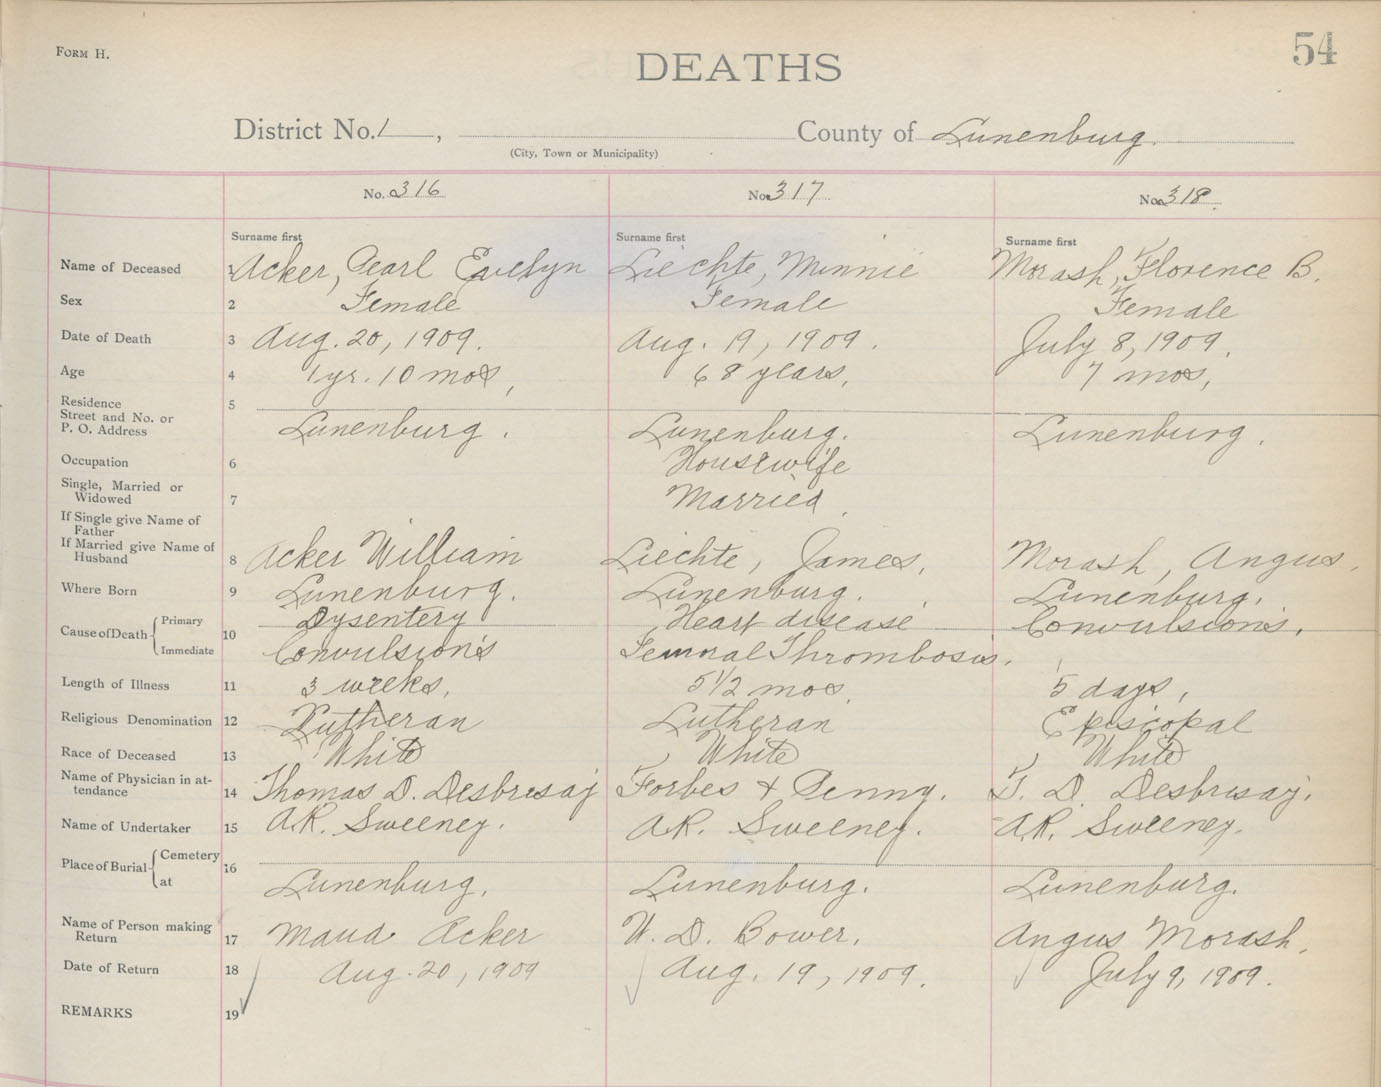 FORM H.
54
DEATHS
District No. 1, County of Lunenburg.
(City, Town or Municipality)
No. 316 No. 317 No. 318.
Surname first Surname first Surname first
Name of Deceased 1 Acker, Pearl Evelyn Liechte, Minnie Morash, Florence B.
Sex 2 Female Female Female
Date of Death 3 Aug. 20, 1909. Aug. 19, 1909. July 8, 1909.
Age 4 1 yr. 10 mos, 68 years, 7 mos,
Residence 5
Street and No. or
P. O. Address Lunenburg. Lunenburg. Lunenburg.
Occupation 6 Housewife
Single, Married or
Widowed 7 Married.
If Single give Name of
Father
If Married give Name of
Husband 8 Acker William Liechte, James, Morash, Angus.
Where Born 9 Lunenburg. Lunenburg. Lunenburg.
Cause of Death 10 Primary Dysentery Heart disease Convulsions.
Immediate Convulsions Femoral Thrombosis.
Length of Illness 11 3 weeks, 5 1/2 mos 5 days,
Religious Denomination 12 Lutheran Lutheran Episcopal
Race of Deceased 13 White White White
Name of Physician in at-
tendance 14 Thomas D. Desbrisay Forbes & Penny. T. D. Desbrisay.
Name of Undertaker 15 A.R. Sweeney. A.R. Sweeney. A.R. Sweeney.
Place of Burial Cemetery 16
at Lunenburg. Lunenburg. Lunenburg.
Name of Person making
Return 17 Maud Acker W. D. Bower. Angus Morash.
Date of Return 18 Aug. 20, 1909 Aug. 19, 1909. July 9, 1909.
REMARKS 19